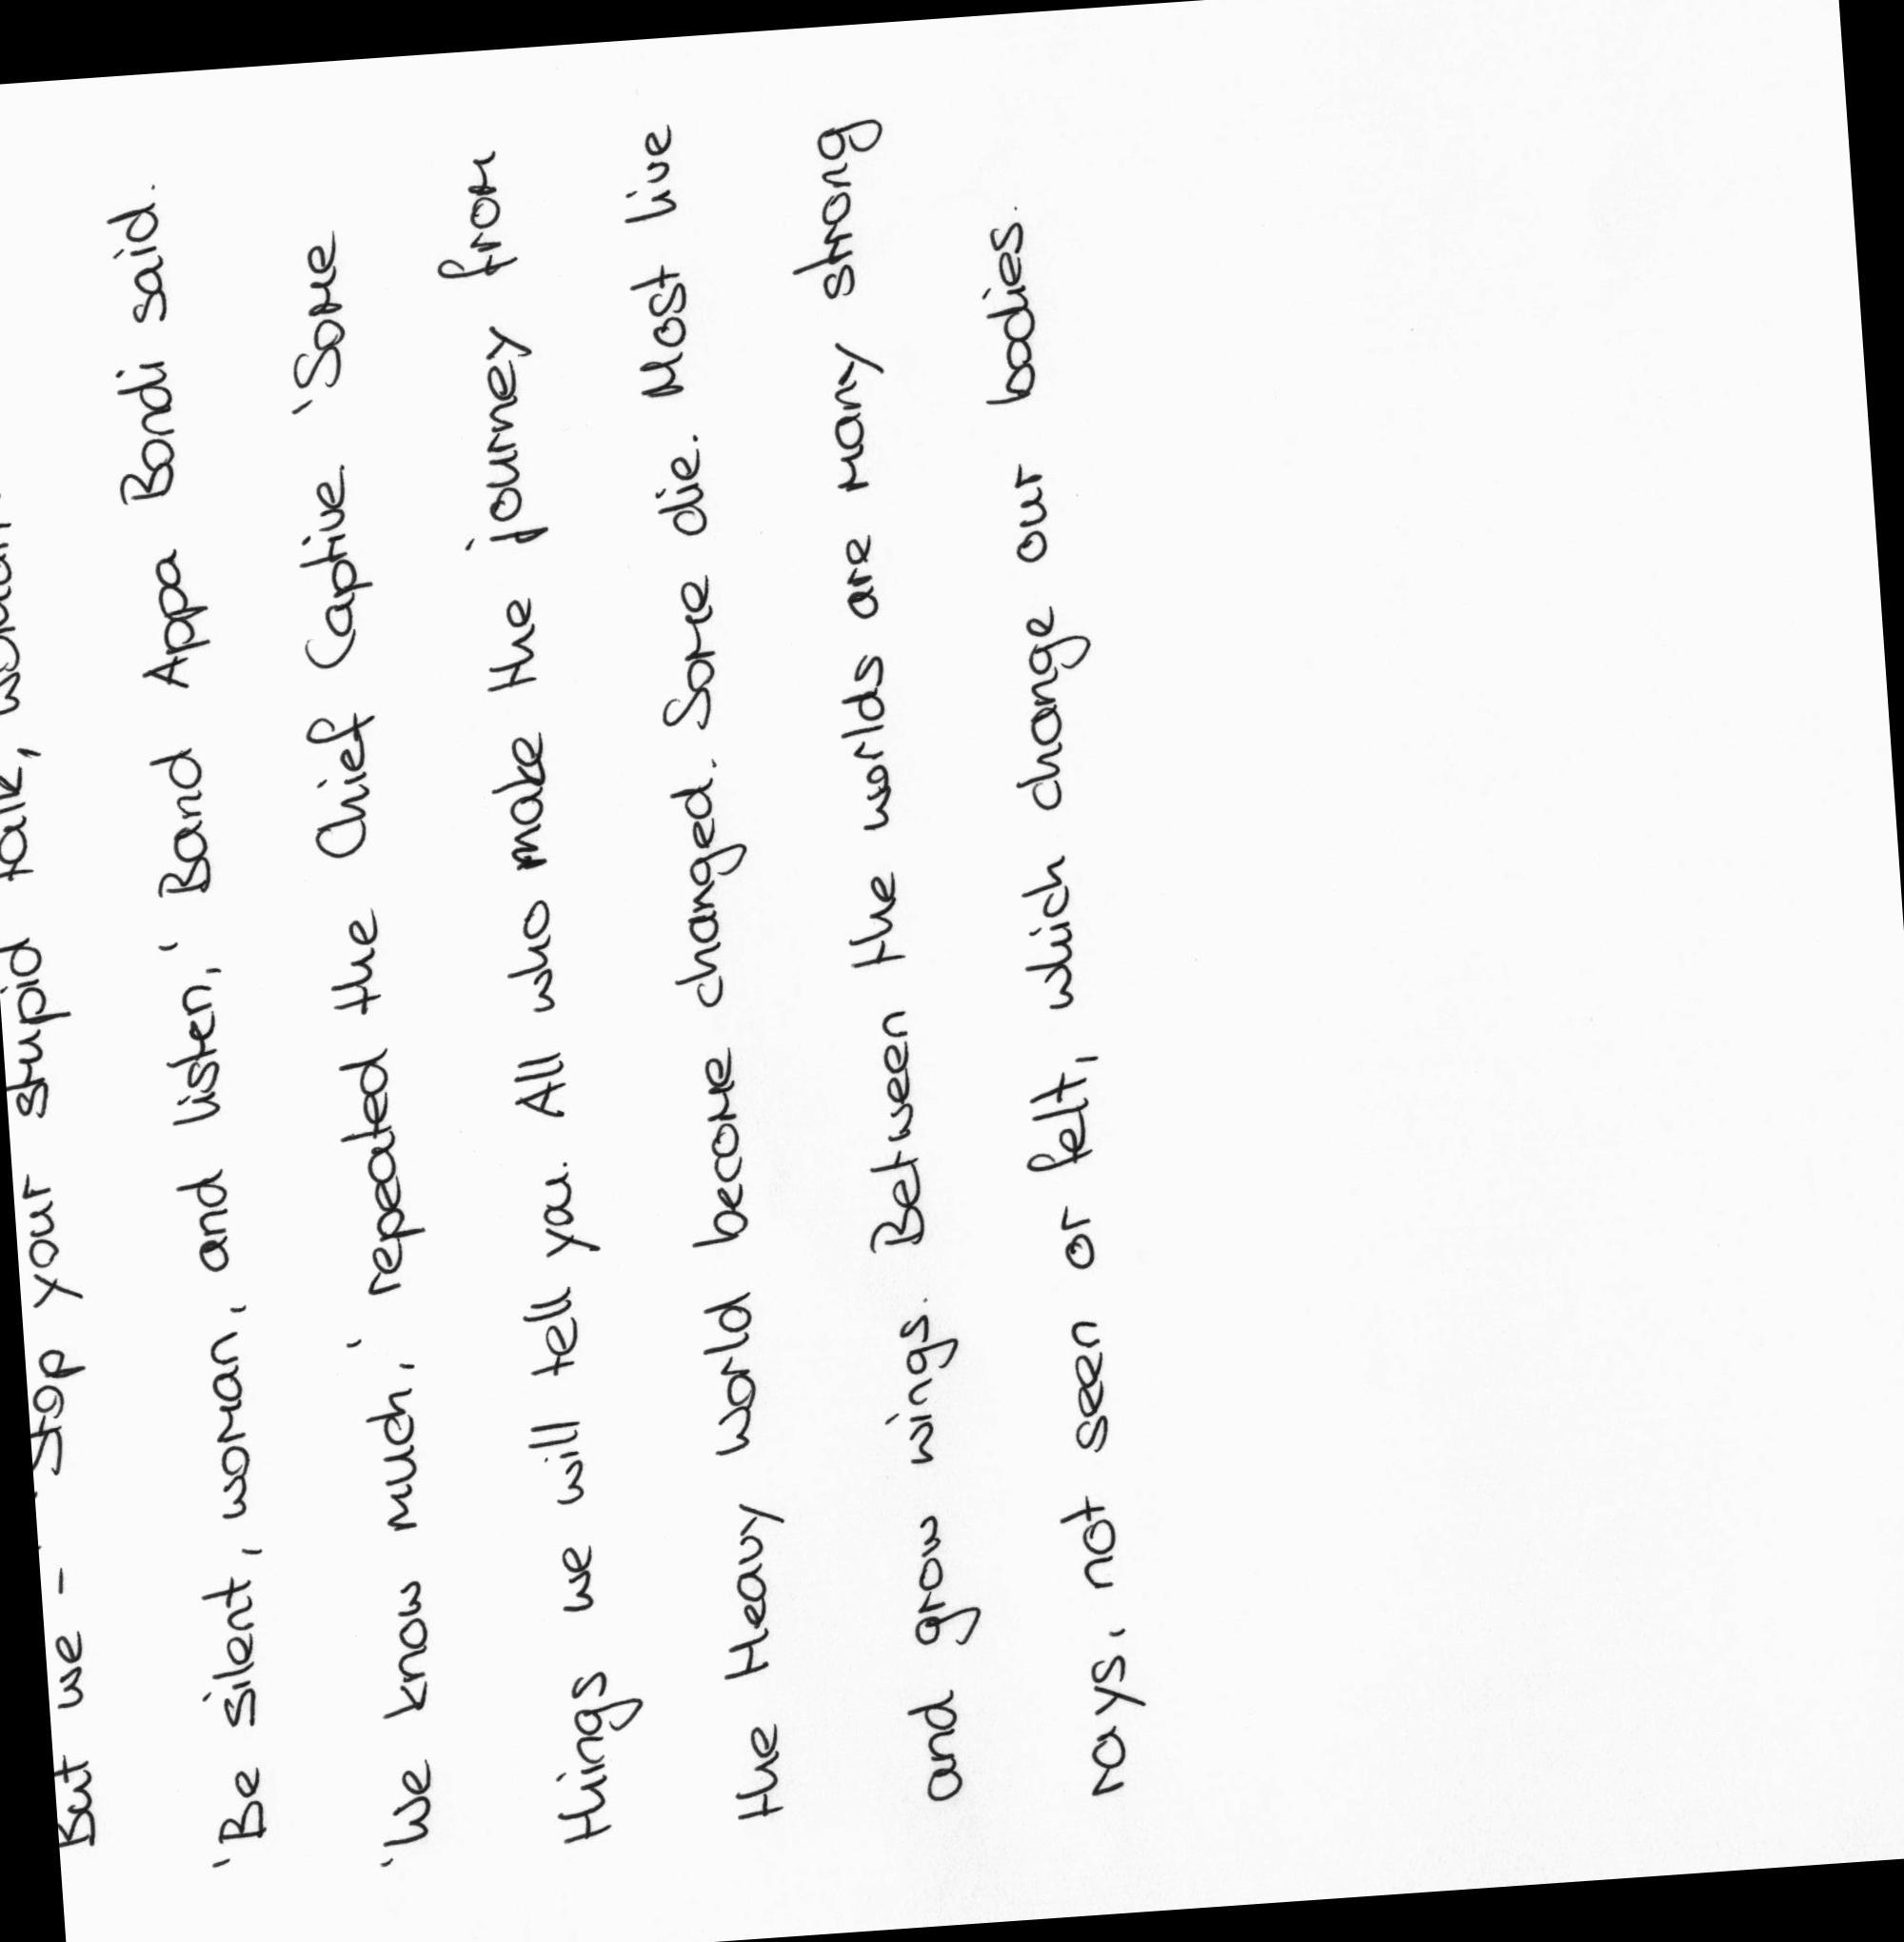 But we - ' 'Stop your stupid talk, woman
'Be silent, woman, and listen,' Band Appa Bondi said.
'We know much,' repeated the Chief Captive 'Some
things we will tell you. All who make the journey from
the Heavy world become changed. Some die. Most live
and grow wings. Between the worlds are many strong
rays, not seen or felt, which change our bodies.